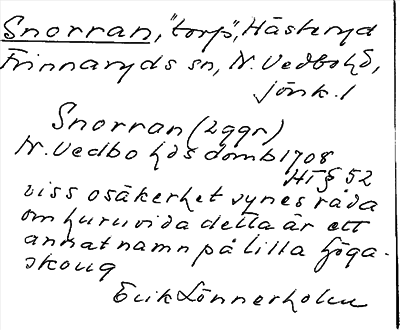 Snorran, "torp", Hästeryd
Frinnaryds sn, N. Vedbo hd,
Jönk. l
Snorran (2 ggr)
N. Vedbo hds domb 1708
HT § 52
viss osäkerhet synes råda
om huruvida detta är ett
annat namn på lilla höga-
skoug
Erik Lönnerholm